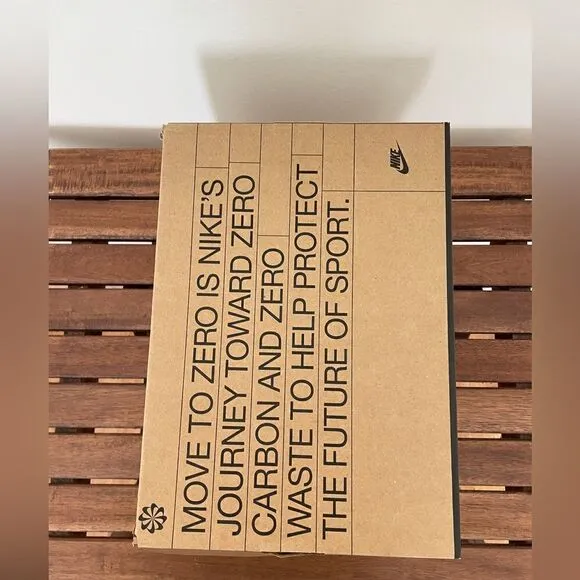 MOVE TO ZERO IS NIKE'S
JOURNEY TOWARD ZERO
CARBON AND ZERO
WASTE TO HELP PROTECT
THE FUTURE OF SPORT.
NIKE